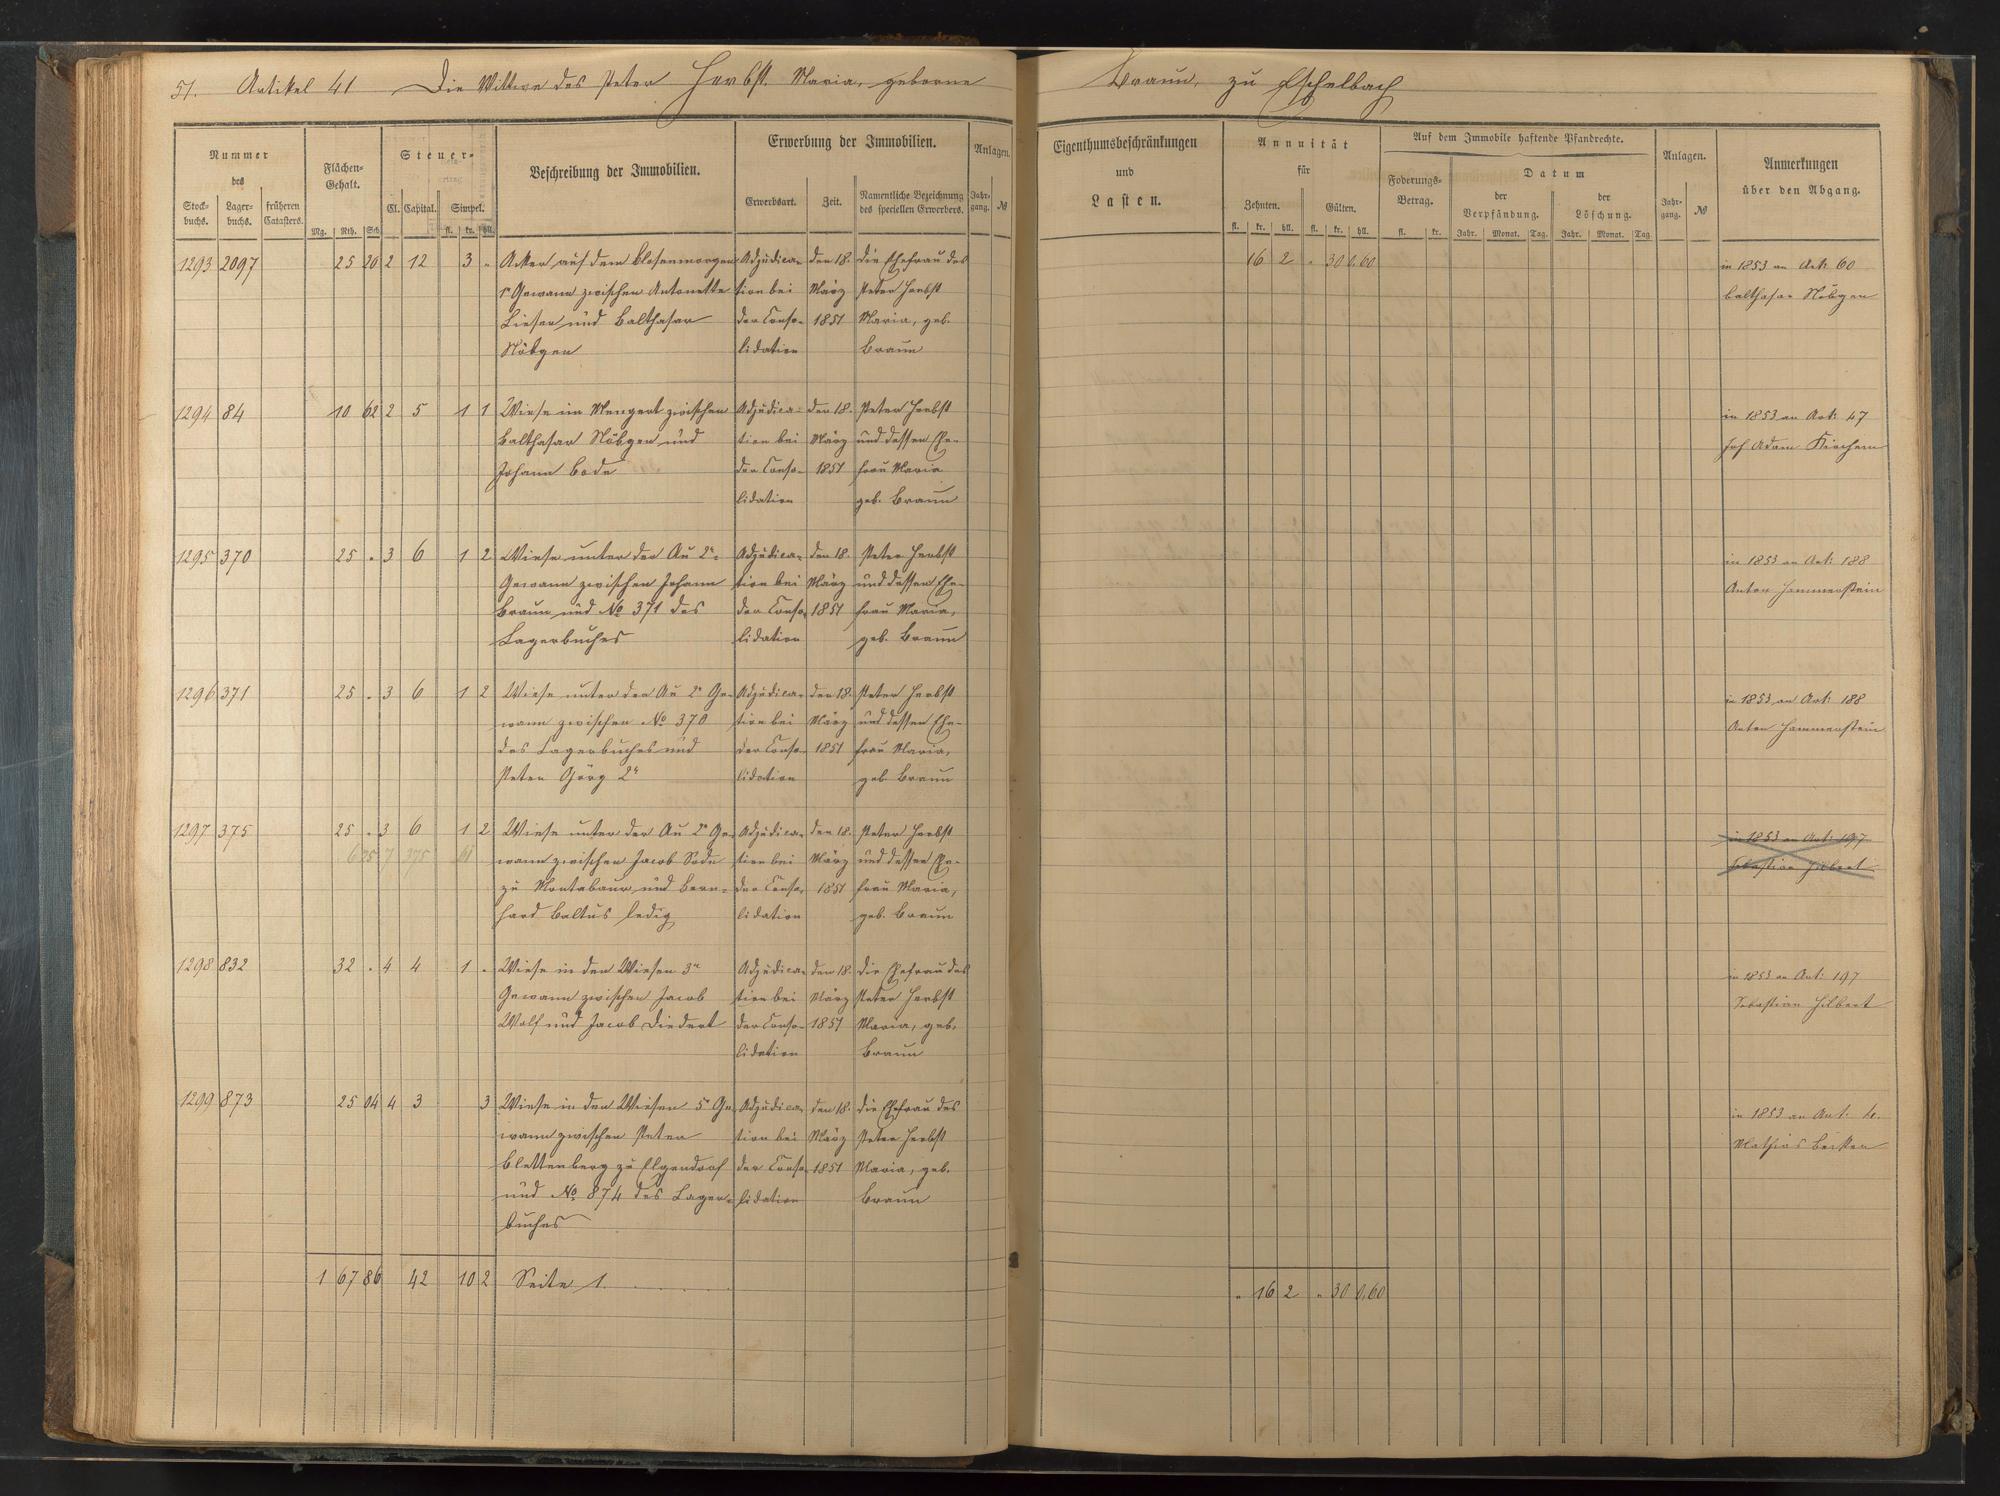 51. Artikel 41 Die Wittwe des Peter Herbst, Maria, geborne Braun, zu Eschelbach
Nummer des
Stock-buchs. Lager-buchs. früheren Catasters.
Flächen-Gehalt.
Mg. Rth. Sch.
Steuer-
Cl. Capital. Simpel.
fl. kr. hll.
Beschreibung der Immobilien.
Erwerbung der Immobilien.
Erwerbsart. Zeit. Namentliche Bezeichnung des speciellen Erwerbers.
Anlagen.
Jahr-gang. №
Eigenthumsbeschränkungen
und
Lasten.
Annuität
für
Zehnten. Gülten.
fl. kr. hll. fl. kr. hll.
Auf dem Immobile haftende Pfandrechte.
Foderungs-Betrag.
fl. kr.
Datum
der Verpfändung. der Löschung.
Jahr. Monat. Tag. Jahr. Monat. Tag.
Anlagen.
Jahr-gang. №
Anmerkungen
über den Abgang.
1293 2097 25 20 2 12 3 „ Acker auf dem Blosenmorgen Adjudica- den 18. die Ehefrau des 16 2 „ 30 0,60 in 1853 an Art: 60
1r Gewann zwischen Antonette tion bei März Peter Herbst Balthasar Nöbgen
Lieser und Balthasar der Conso- 1851 Maria, geb.
Nöbgen lidation Braun
1294 84 10 62 2 5 1 1 Wiese im Mengert zwischen Adjudica- den 18. Peter Herbst in 1853 an Art: 47
Balthasar Nöbgen und tion bei März und dessen Ehe- Joh Adam Kirchem
Johann Bode der Conso- 1851 frau Maria
lidation geb. Braun
1295 370 25 „ 3 6 1 2 Wiese unter der Au 2r Adjudica- den 18. Peter Herbst in 1853 an Art: 188
Gewann zwischen Johann tion bei März und dessen Ehe- Anton Hammerstein
Braun und № 371 des der Conso- 1851 frau Maria,
Lagerbuches lidation geb. Braun
1296 371 25 „ 3 6 1 2 Wiese unter der Au 2r Ge- Adjudica- den 18. Peter Herbst in 1853 an Art: 188
wann zwischen № 370 tion bei März und dessen Ehe- Anton Hammerstein
des Lagerbuches und der Conso- 1851 frau Maria,
Peter Görg 2r lidation geb. Braun
1297 375 25 „ 3 6 1 2 Wiese unter der Au 2r Ge- Adjudica- den 18. Peter Herbst in 1853 an Art: 197
6 25 7 375 61 wann zwischen Jacob Bode tion bei März und dessen Ehe- Sebastian Hilbert
zu Montabaur und Bern- der Conso- 1851 frau Maria,
hard Baltus ledig lidation geb. Braun
1298 832 32 „ 4 4 1 „ Wiese in den Wiesen 3r Adjudica- den 18. die Ehefrau des in 1853 an Art: 197
Gewann zwischen Jacob tion bei März Peter Herbst Sebastian Hilbert
Wolf und Jacob Diedert der Conso- 1851 Maria, geb.
lidation Braun
1299 873 25 04 4 3 3 Wiese in den Wiesen 5r Ge- Adjudica- den 18. die Ehefrau des in 1853 an Art: 4.
wann zwischen Peter tion bei März Peter Herbst Mathias Becker
Blettenberg zu Elgendorf der Conso- 1851 Maria, geb.
und № 874 des Lager- lidation Braun
buches
1 67 86 42 10 2 Seite 1. „ 16 2 „ 30 0,60